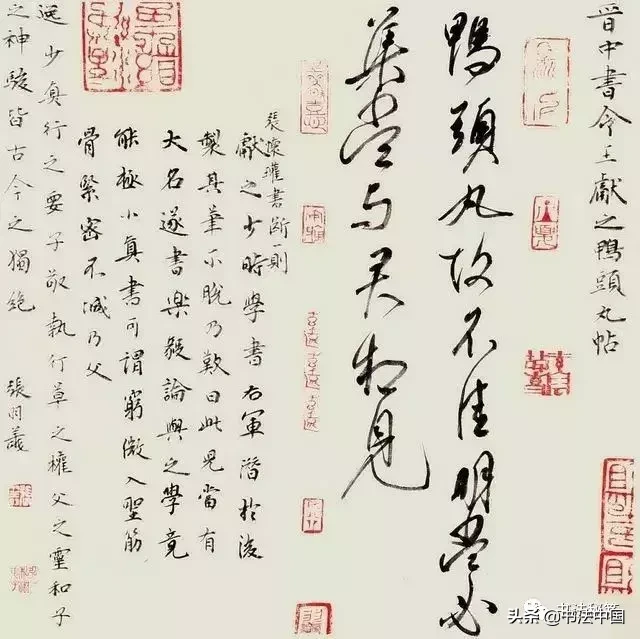 晋中書令王獻之鴨頭丸帖
鴨頭丸故不佳明當必
集當與君相見
張懷瓘書断一則
獻之少時學書右軍潛於後
製其筆不脫乃歎曰此兒當有
大名遂書樂毅論與之學竟
能極小真書可謂窮微入聖筋
骨緊密不減乃父
逸少真行之要子敬執行草之權父之靈和子
之神駿皆古今之獨絶
头条 @书法中国